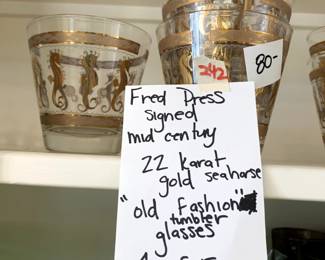 80-
242
Fred Press
signed
mid century
22 karat
gold seahorse
"old fashion"
tumbler
glasses